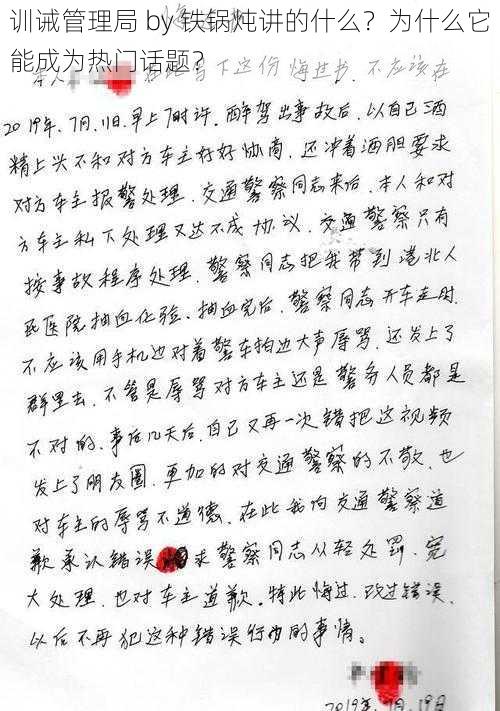 训诫管理局 by 铁锅炖讲的什么？为什么它
能成为热门话题？
悔过书
本人 下这份悔过书.不应该在
2019年.7月.11日.早上7时许.醉驾出事故后.以自己酒
精上头不和对方车主好好协商.还冲着酒胆要求
对方车主报警处理.交通警察同志来后.本人和对
方车主私下处理又达不成协议.交通警察只有
按事故程序处理.警察同志把我带到港北人
民医院抽血化验.抽血完后.警察同志开车走时.
不应该用手机边对着警车拍边大声辱骂.还发上了
群里去.不管是辱骂对方车主还是警务人员都是
不对的.事后几天后.自己又再一次错把这视频
发上了朋友圈.更加的对交通警察的不敬.也
对车主的辱骂不道德.在此我向交通警察道
歉承认错误 求警察同志从轻处罚.宽
大处理.也对车主道歉.特此悔过.改过错误.
以后不再犯这种错误行为的事情。
2019年.7月.19日